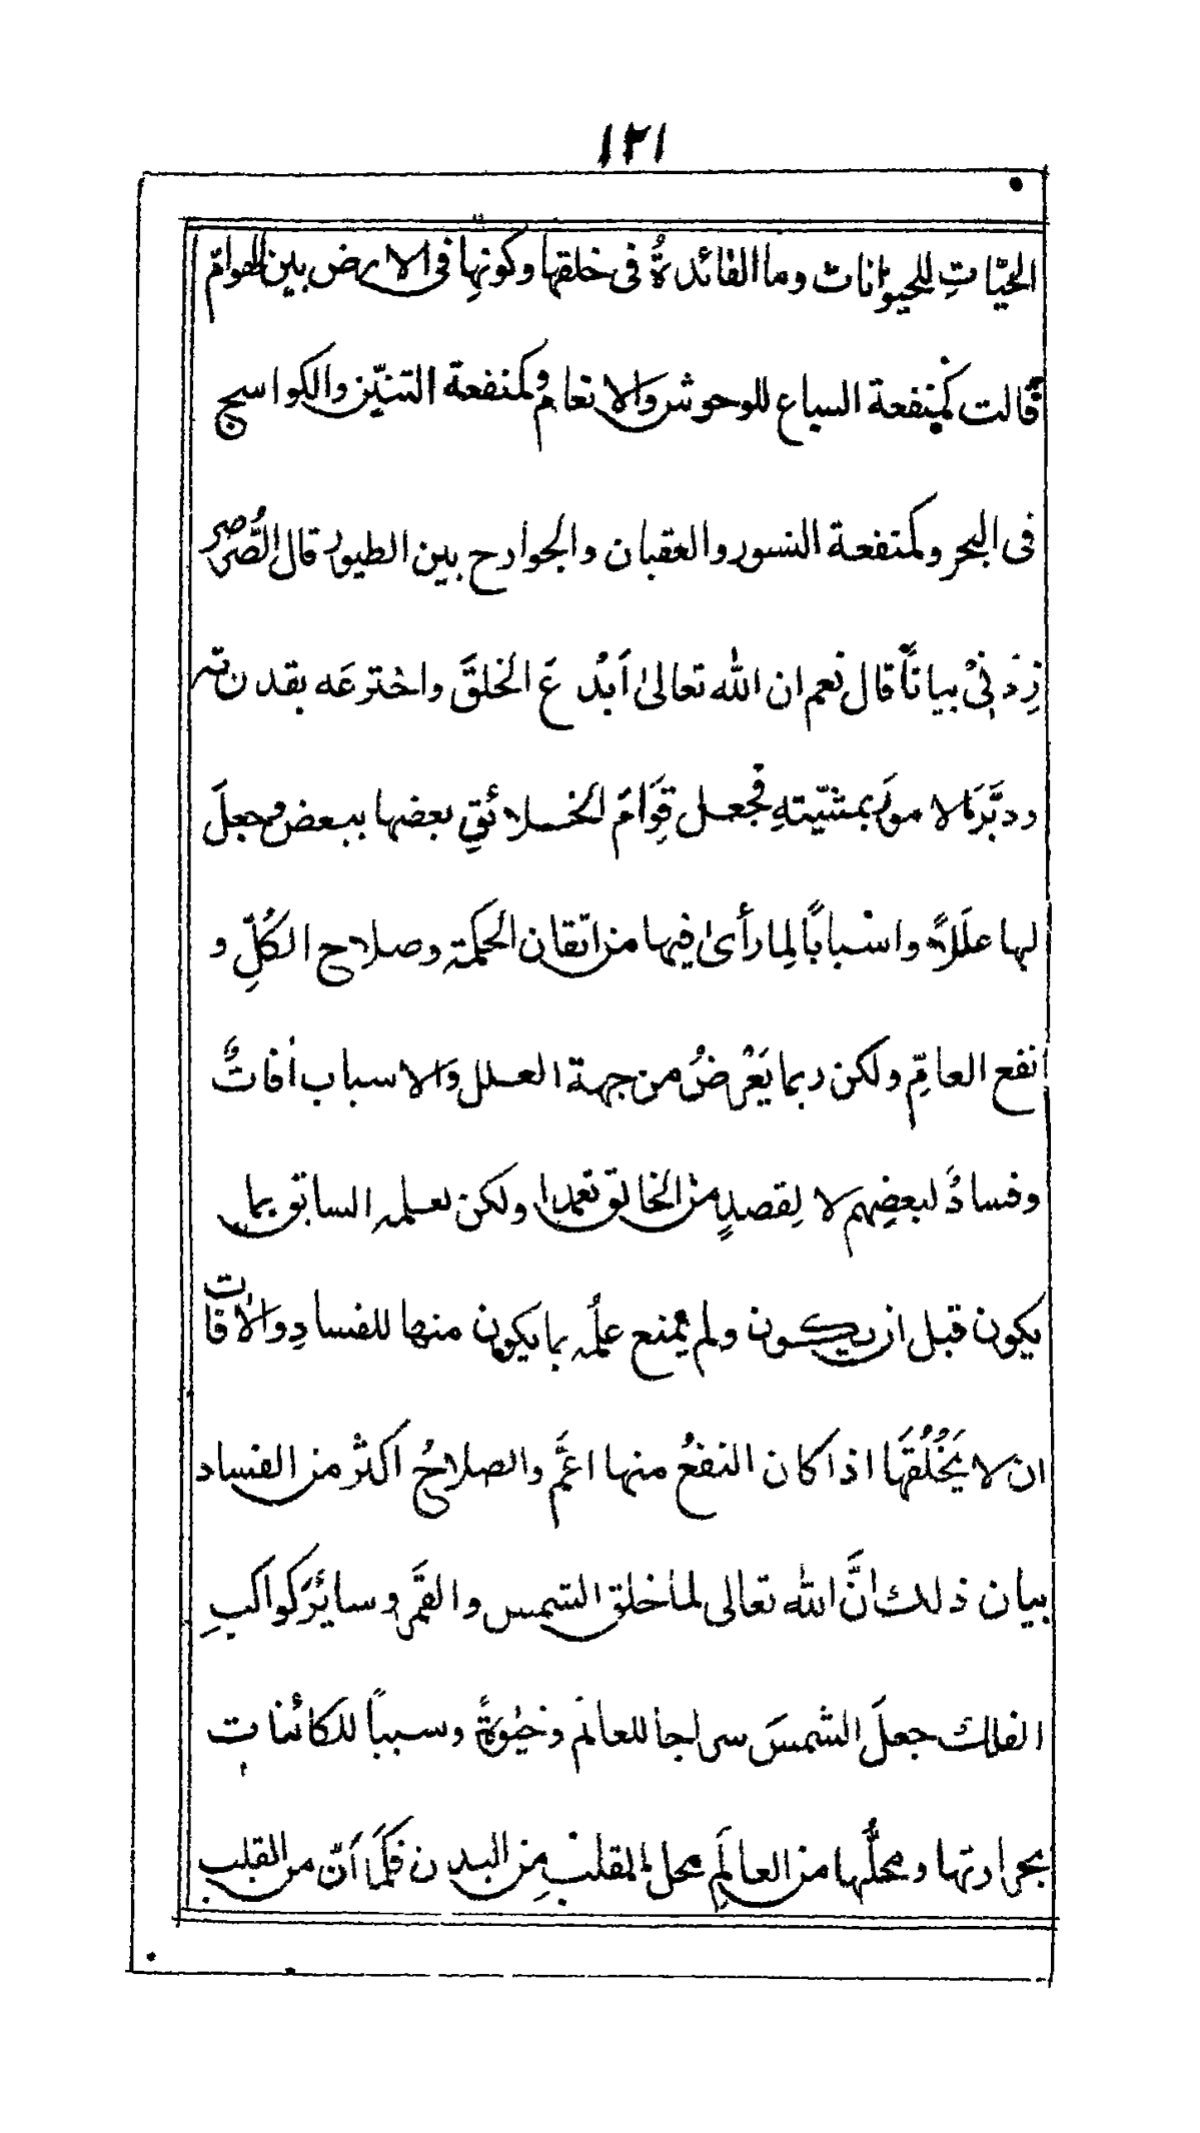 ١٢١
الحيّاتِ للحيوانات وما الفائدةُ فى خلقها وكونِها فى الارض بين الهوامّ
قالت كمنفعة السباع للوحوش والانعام وكمنفعة التنيّن والكواسج
فى البحر وكمنفعة النسور والعقبان والجوارح بين الطيور قال الصُّرصر
زِدْنِىْ بياناً قال نعم ان اللّٰه تعالىٰ اَبْدعَ الخلقَ واخترعَه بقدرته
ودبَّرَ الامورَ بمشيّتهِ فجعل قِوَامَ الخلائقِ بعضها ببعض وجعلَ
لها علَلاً واسْبابًا لِما رأىٰ فيها من اتّقان الحكمة وصلاح الكُلِّ و
نفع العامِّ ولكن ربما يَعْرضُ من جهة العلل والاسباب أفاتٌ
وفسادٌ لبعضِهم لا لِقصدٍ من الخالق تعمدا ولكن لعلمه السابق بما
يكون قبل ان يكون ولم يمنع علمُه بما يكون منها للفسادِ والافات
ان لا يَخْلُقَها اذا كان النفعُ منها اعَمَّ والصلاحُ اكثرْ من الفساد
بيان ذلك انَّ اللّٰه تعالى لما خلق الشمس والقمَر وسائرَ كواكبِ
الفلك جعلَ الشمسَ سراجا للعالم وحيٰوةً وسبباً للكائنات
بحرارتها ومحلُّها من العالَمِ محل القلبِ مِن البدن فكَمَا اَنّ من القلب